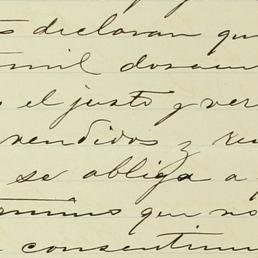 declaran que
mil doscien
el justo y ver
vendidos y re
se obliga a
que no
consentim